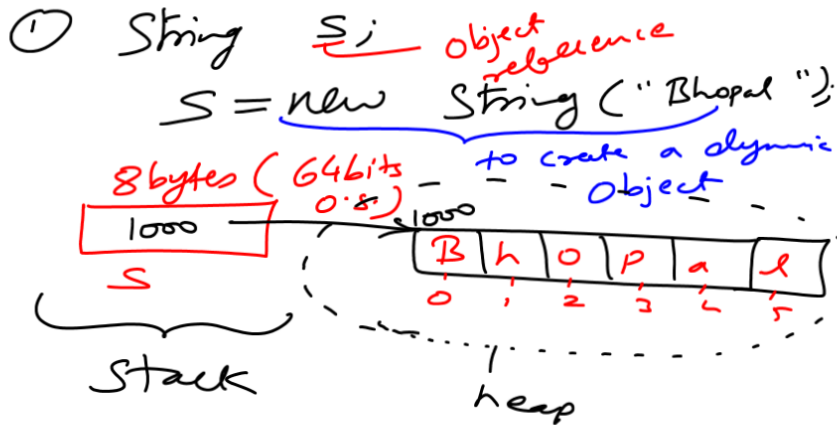 ① String S;
object
reference
S = new String ("Bhopal");
to create a dynamic
Object
8 bytes (64 bits
O.S.)
1000
1000
B h o p a l
0 1 2 3 4 5
S
Stack
heap